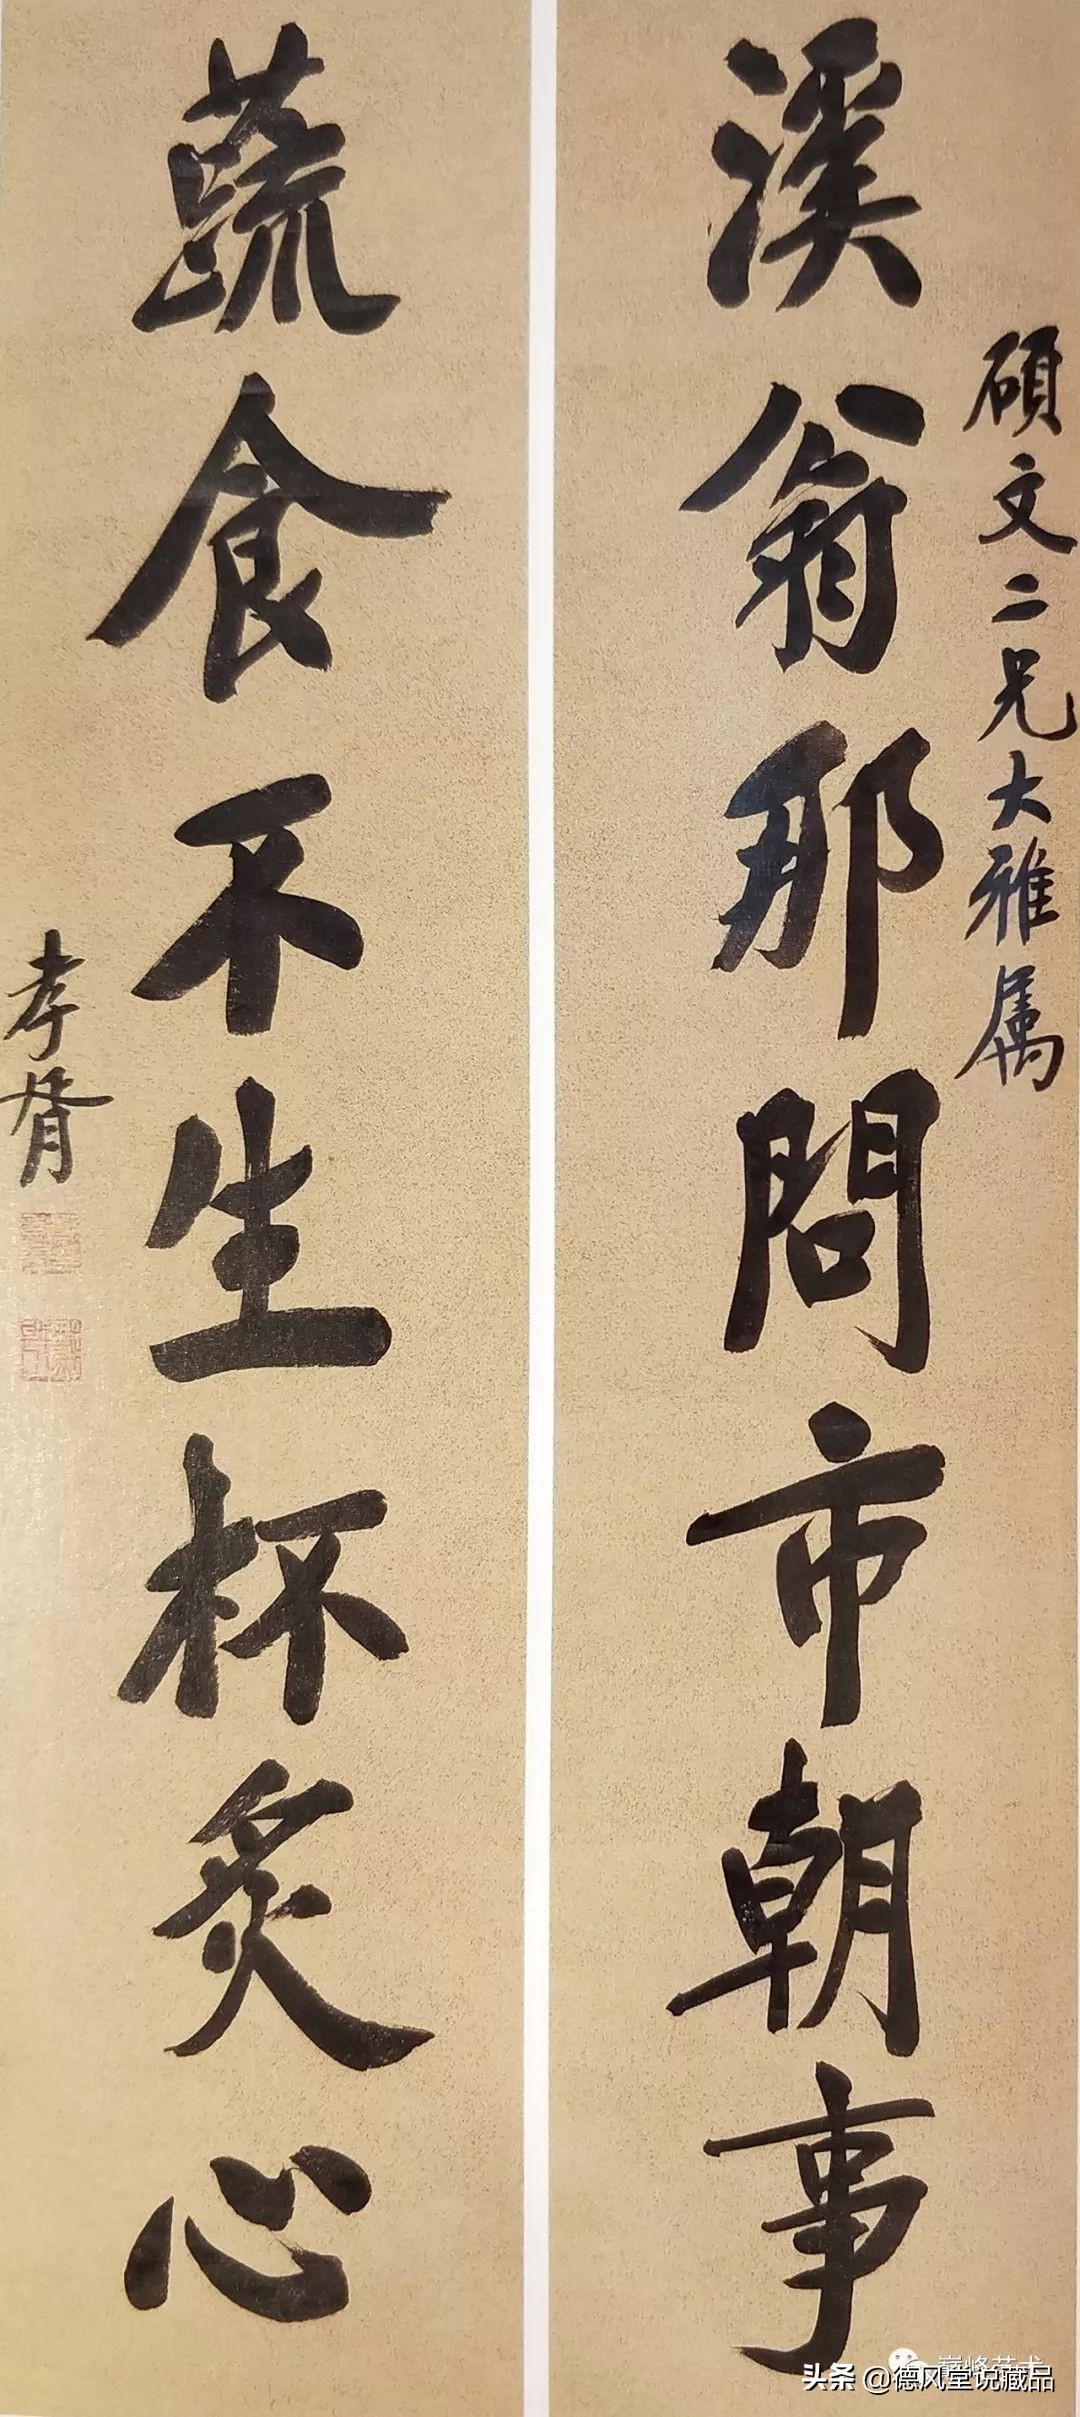 碩文二兄大雅属
溪翁那問市朝事
蔬食不生杯炙心
孝胥
巅峰艺术
头条 @德风堂说藏品